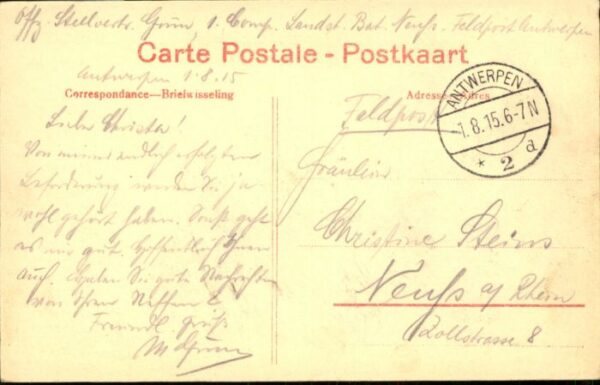 Offz. Stellvertr. Grün, 1. Comp. Landst. Bat. Neuss. Feldpost Antwerpen
Carte Postale - Postkaart
Antwerpen 1.8.15
Correspondance—Briefwisseling
Adresse
Feldpost
ANTWERPEN
1.8.15.6-7N
* 2 a
Liebe Christa!
Von meiner endlich erfolgten
Beförderung werden Sie ja
wohl gehört haben. Sonst geht
es mir gut. Hoffentlich Ihnen
auch. Haben Sie gute Nachrichten
von Ihrem Neffen?
Freundl. Grüße
Fräulein
Christine Steins
Neuss a/ Rhein
Zollstrasse 8